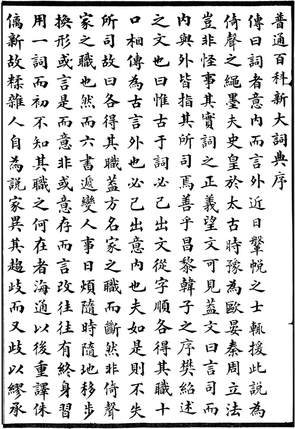 普通百科新大詞典序
傳曰詞者意內而言外近日鞶帨之士輒援此說為
倚聲之繩墨夫史皇於太古時豫為歐晏秦周立法
豈非怪事其實詞之正義望文可見蓋文曰言司而
內與外皆指其所司焉善乎昌黎韓子之序樊紹述
之文也曰惟古于詞必己出文從字順各得其職十
口相傳為古言外也必己出意內也夫如是則不失
所司故曰各得其職蓋方名家之職而斷然非倚聲
家之職也然而六書遞變人事日煩隨時隨地移步
換形或言是而意非或意存而言改往往有終身習
用一詞而初不知其職之何在者海通以後重譯侏
僑新故糅雜人自為說家異其趨歧而又歧以繆承